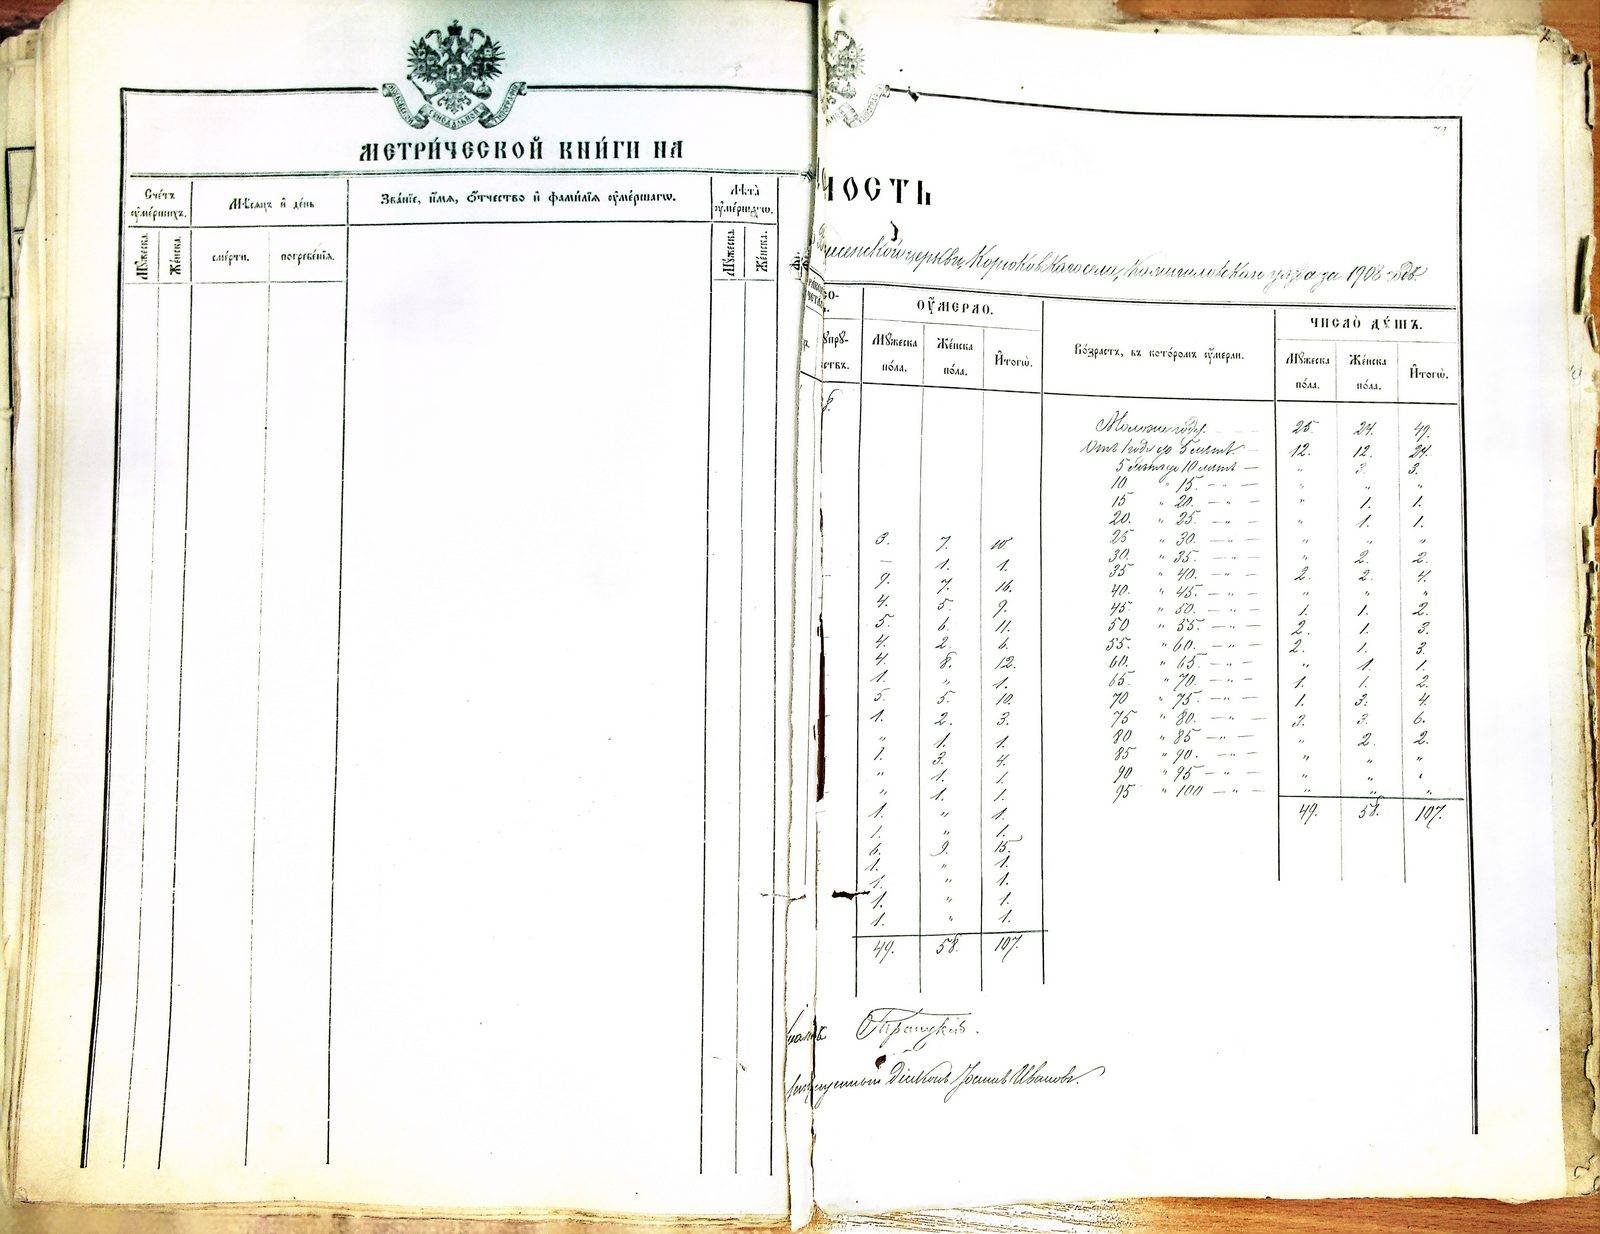 МЕТРИ́ЧЕСКОЙ КНИ́ГИ НА
Сче́тъ ᲂу҆ме́ршихъ.
Мѣ́сяцъ и҆ де́нь
Зва́нїе, и҆́мя, ѻ҆́тчество и҆ фами́лїя ᲂу҆ме́ршагѡ.
Лѣ́та ᲂу҆ме́ршагѡ.
Мꙋ́жеска.
Же́нска.
сме́рти.
погребе́нїя.
Мꙋ́жеска.
Же́нска.
НОСТЬ
церкви, села, за 1908
ᲂУ҆́МЕРЛО.
ЧИСЛО̀ ДꙊ́ШЪ.
Мꙋ́жеска по́ла.
Же́нска по́ла.
И҆тогѡ̀.
Во́зрастъ, въ кото́ромъ ᲂу҆́мерли.
Мꙋ́жеска по́ла.
Же́нска по́ла.
И҆тогѡ̀.
Моложе года. 25. 24. 49.
Отъ 1 года до 5 лѣтъ. — 12. 12. 24.
5 лѣтъ до 10 лѣтъ — „ 3. 3.
10 „ 15. — „ — „ „ „
15 „ 20. — „ — „ 1. 1.
20. „ 25. — „ — „ 1. 1.
3. 7. 10. 25 „ 30. — „ — „ „ „
— 1. 1. 30. „ 35. — „ — „ 2. 2.
9. 7. 16. 35 „ 40. — „ — 2. 2. 4.
4. 5. 9. 40. „ 45. — „ — „ „ „
5. 6. 11. 45. „ 50. — „ — 1. 1. 2.
4. 2. 6. 50 „ 55. — „ — 2. 1. 3.
4. 8. 12. 55. „ 60. — „ — 2. 1. 3.
1. „ 1. 60. „ 65. — „ — „ 1. 1.
5. 5. 10. 65. „ 70. — „ — 1. 1. 2.
1. 2. 3. 70 „ 75. — „ — 1. 3. 4.
„ 1. 1. 75 „ 80. — „ — 3. 3. 6.
1. 3. 4. 80 „ 85 — „ — „ 2. 2.
„ 1. 1. 85 „ 90. — „ — „ „ „
„ 1. 1. 90 „ 95 — „ — „ „ „
1. „ 1. 95 „ 100 — „ — „ „ „
1. „ 1. 49. 58. 107.
6. 9. 15.
1. „ 1.
1. „ 1.
1. „ 1.
1. „ 1.
49. 58. 107.
Діаконъ Іоаннъ Ивановъ.